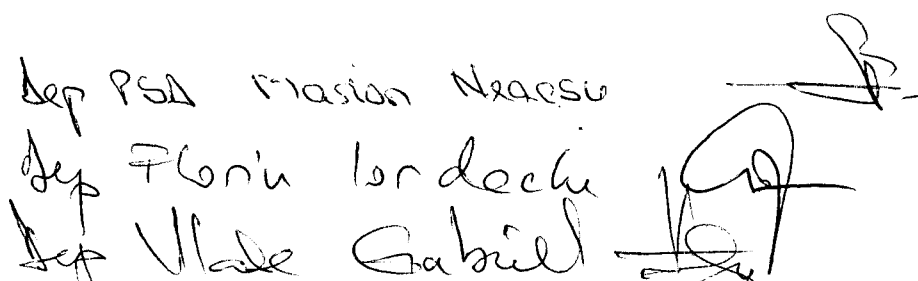 Dep PSD Marian Neacsu
Dep Florin Iordache
Dep Vlase Gabriel